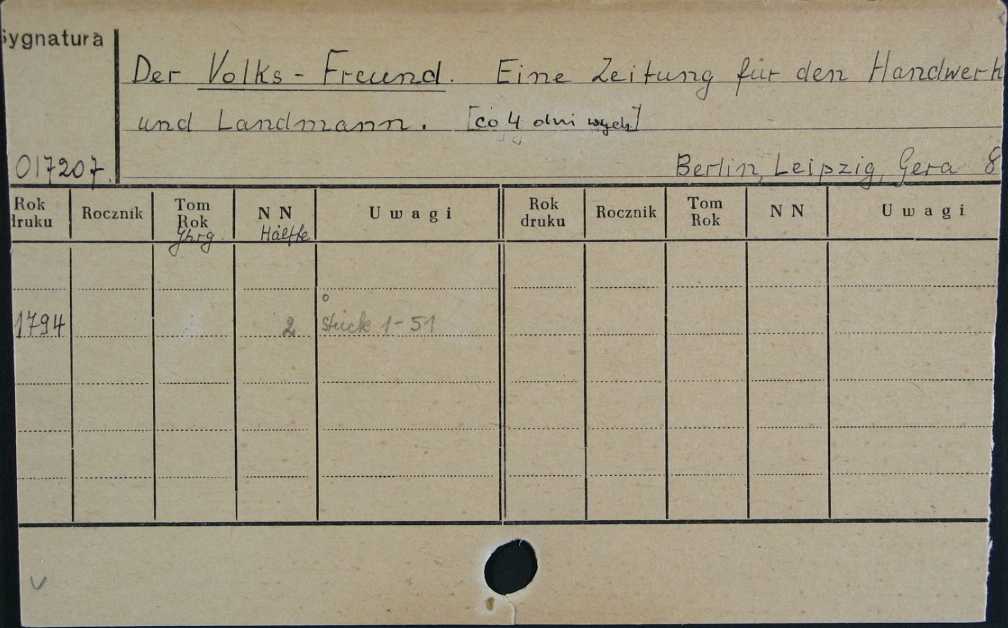 Sygnatura
Der Volks-Freund. Eine Zeitung für den Handwerk
und Landmann. [co 4 dni wych]
017207.
Berlin, Leipzig, Gera 8
Rok druku Rocznik Tom Rok Jhrg N N Hälfte Uwagi Rok druku Rocznik Tom Rok N N Uwagi
1794 2 Stück 1-51